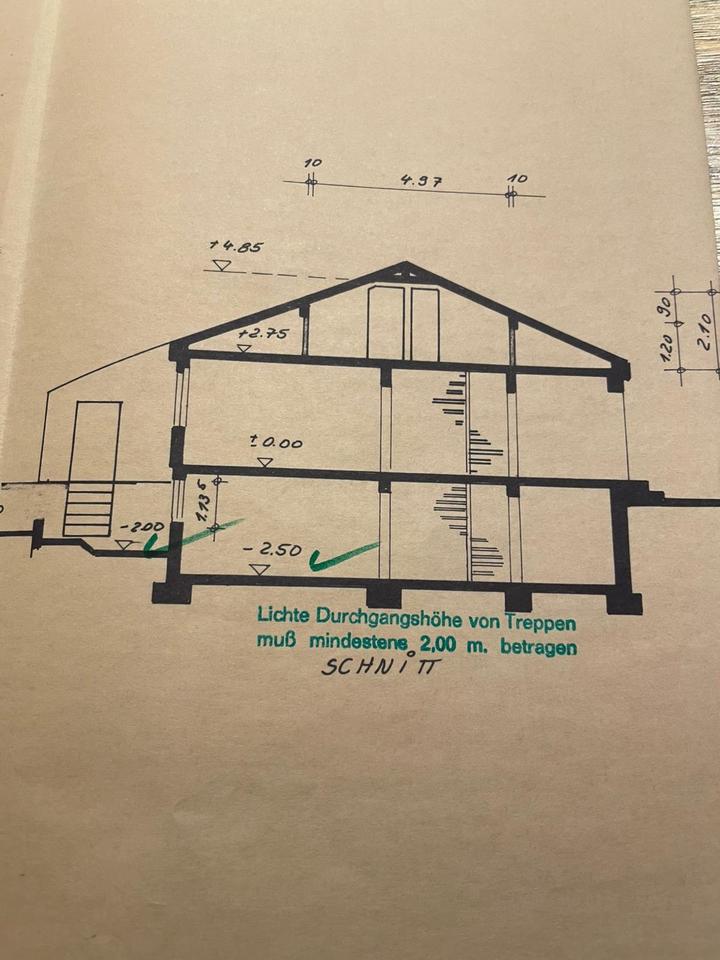 10 4.97 10
+4.85
90
1.20 2.10
+2.75
± 0.00
1.135
-2.00
- 2.50
Lichte Durchgangshöhe von Treppen
muß mindestens 2,00 m. betragen
SCHNITT